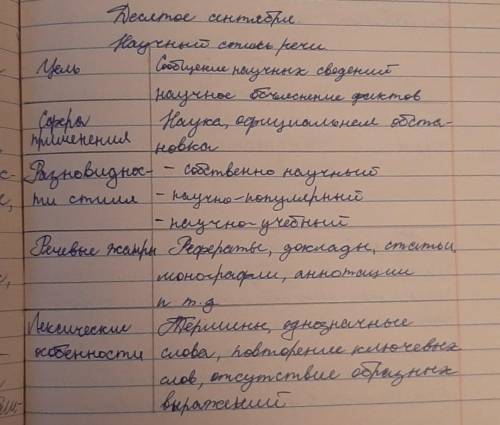 Десятое сентября.
Научный стиль речи
Цель Сообщение научных сведений
научное объяснение фактов
Сфера Наука, официальнем обста-
применения новка
Разновиднос- - собственно научный
ти стиля - научно-популярный
- научно-учебный
Речевые жанры Рефераты, доклады, статьи,
монографии, аннотации
и т.д
Лексические Термины, однозначные
особенности слова, повторение ключевых
слов, отсутствие образных
выражений